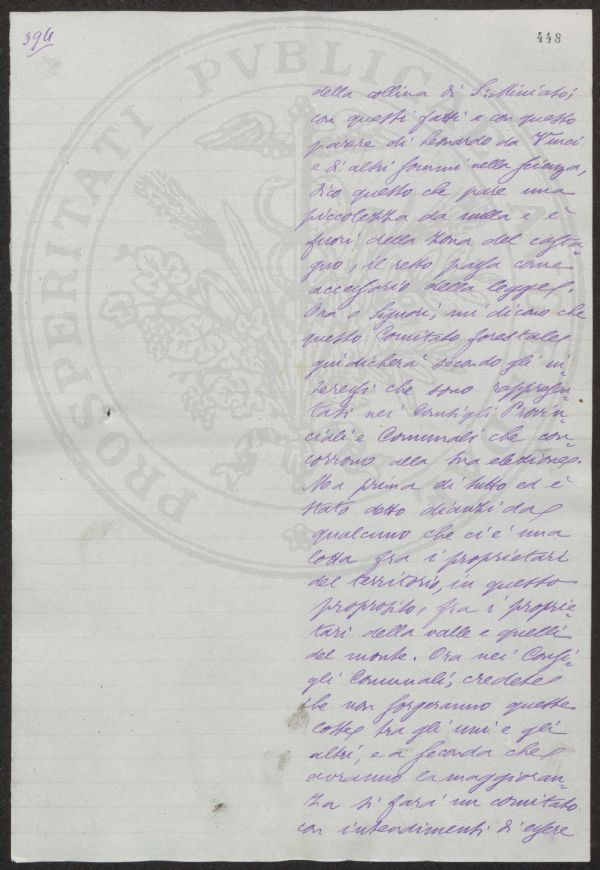 394
448
PROSPERITATI PVBLICAE
della collina di S. Miniato;
con questi fatti e con questo
parere di Leonardo da Vinci
e di altri sommi nella scienza,
dico questo che pare una
piccolezza da nulla e è
fuori della zona del casta-
gno, il resto passa come
accessorio della legge.
Ora o Signori, mi dicono che
questo Comitato forestale
giudicherà secondo gli in-
teressi che sono rappresen-
tati nei Consigli Provin-
ciali e Comunali che con-
corrono alla sua elezione.
Ma prima di tutto ed è
stato detto dianzi da
qualcuno che ci è una
lotta fra i proprietari
del territorio, in questo
proposito, fra i proprie-
tari della valle e quelli
del monte. Ora nei Consi-
gli Comunali, credete
che non sorgeranno queste
lotte tra gli uni e gli
altri, e a seconda che
avranno la maggioran-
za si farà un comitato
con intendimenti di essere